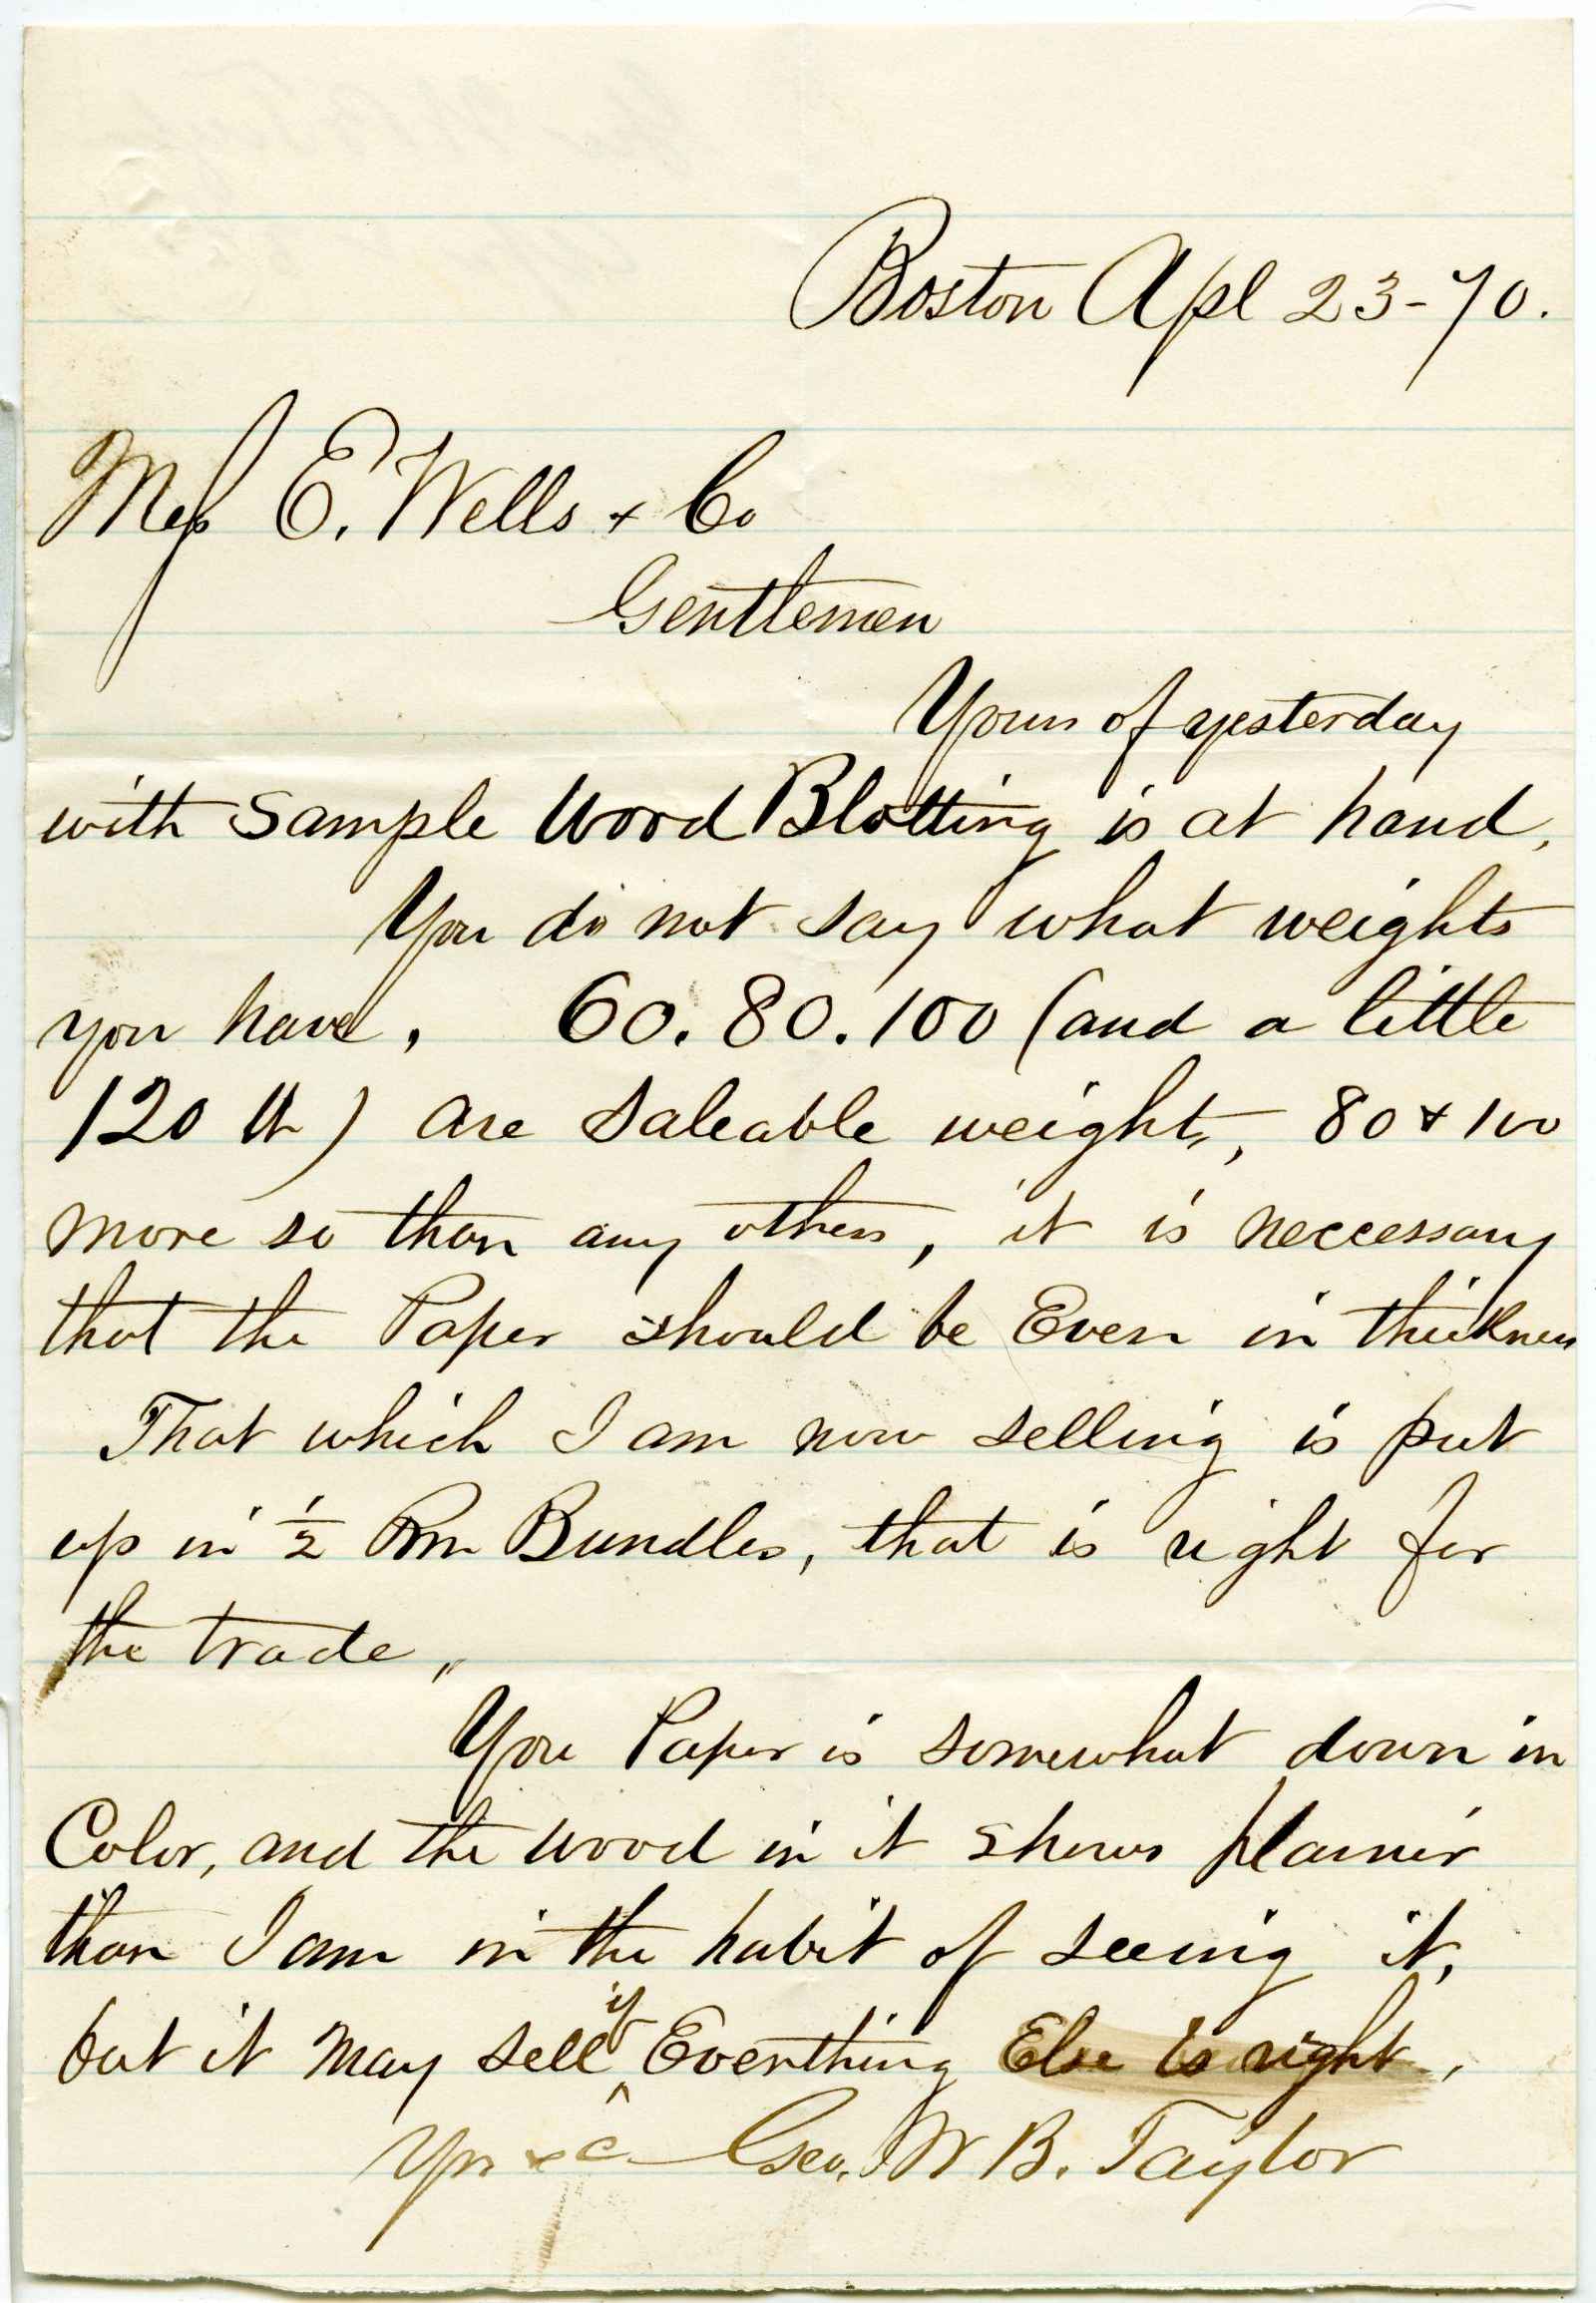 Boston Apl 23-70.
Mess E. Wells + Co
Gentlemen
Yours of yesterday
with Sample Wood Blotting is at hand,
You do not say what weights
you have, 60. 80. 100 (and a little
120 lb) are Saleable weights, 80 + 100
more so than any others, it is neccessary
that the Paper should be Even in thickness
That which I am now selling is put
up in ½ Rm Bundles, that is right for
the trade,,
You Paper is somewhat down in
Color, and the wood in it shows plainer
than I am in the habit of seeing it,
but it may sell if Everthing Else is right,
Yrs &c Geo. W B. Taylor